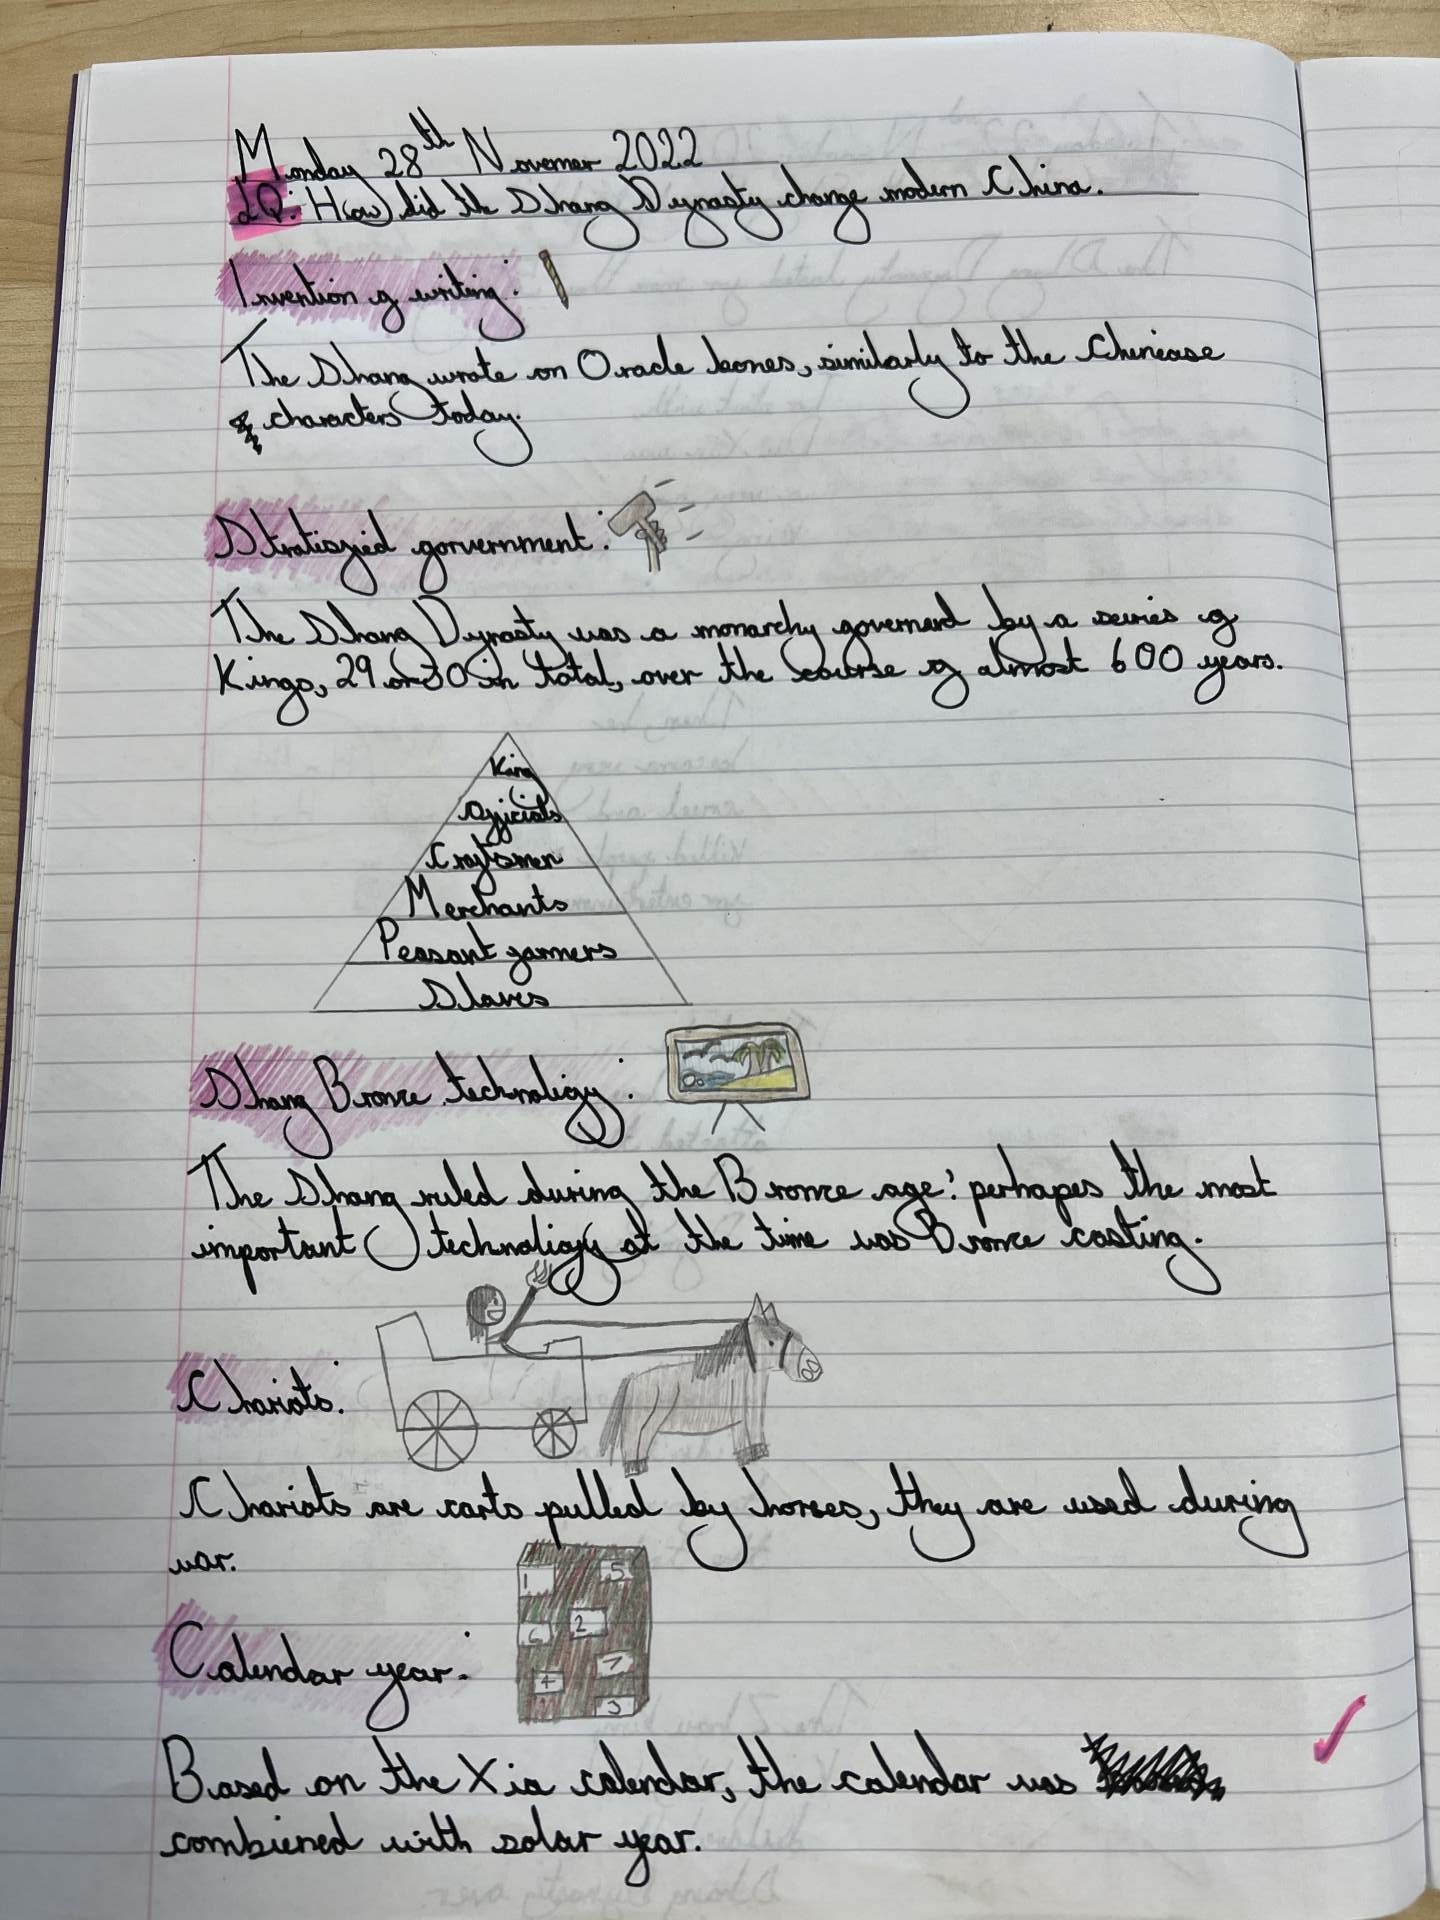 Monday 28th Novemer 2022
LQ: How did the Shang Dynasty change modern China.
Invention of writing:
The Shang wrote on Oracle bones, similarly to the Chinease
characters today.
Stratiszied gorvernment:
The Shang Dynasty was a monarchy governerd by a series of
Kings, 29 or 30 in total, over the course of almost 600 years.
King
Officials
Craftsmen
Merchants
Peasant farmers
Slaves
Shang Bronze technoligy:
The Shang ruled during the Bronze age: perhapes the most
important technoligy at the time was Bronze casting.
Chariots:
Chariots are carts pulled by horses, they are used during
war.
1 5
6 2
4 7
3
Calendar year:
Based on the Xia calendar, the calendar was
combiened with solar year.